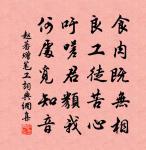 食肉既無相
良工徒苦心
吁嗟君類我
何處覓知音
趙蕃贈筆工詞典網集